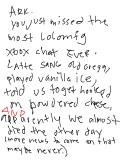 ABK.
you, just missed the
most lolomfg
xbox chat ever.
Latte sang old gregg,
played vanilla ice,
told us to get honked
on powdered cheese,
AND
apparently we almost
died the other day
(more news to come on that
maybe never.)